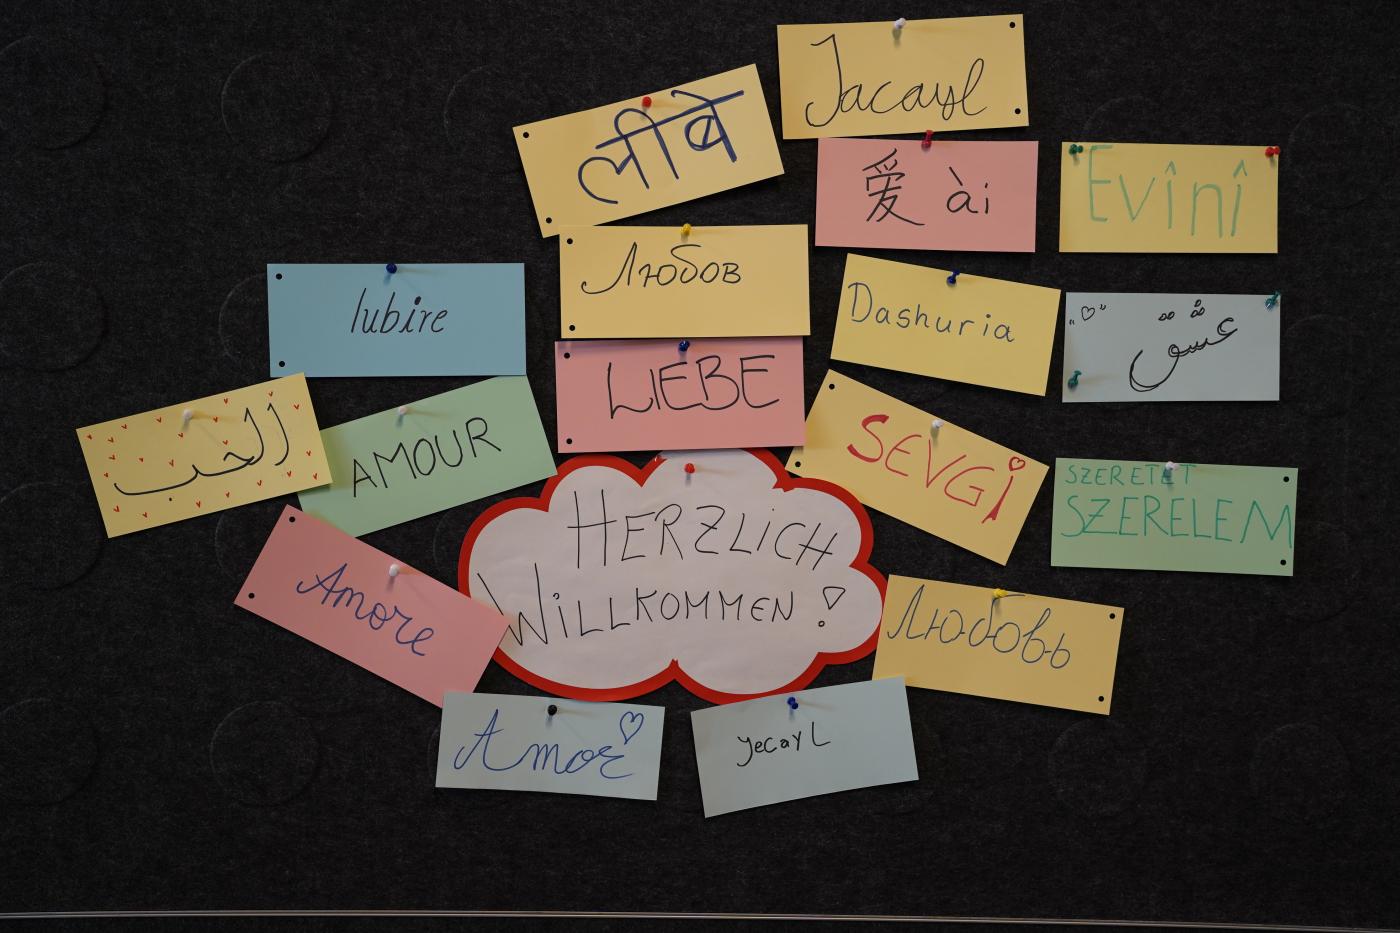 Jacayl
लीबे
爱 ài
Evînî
Любов
Dashuria
عشق
Iubire
LIEBE
الحب
AMOUR
SEVGİ
SZERETET
SZERELEM
HERZLICH
WILLKOMMEN!
Amore
Любовь
Amor
yecayL